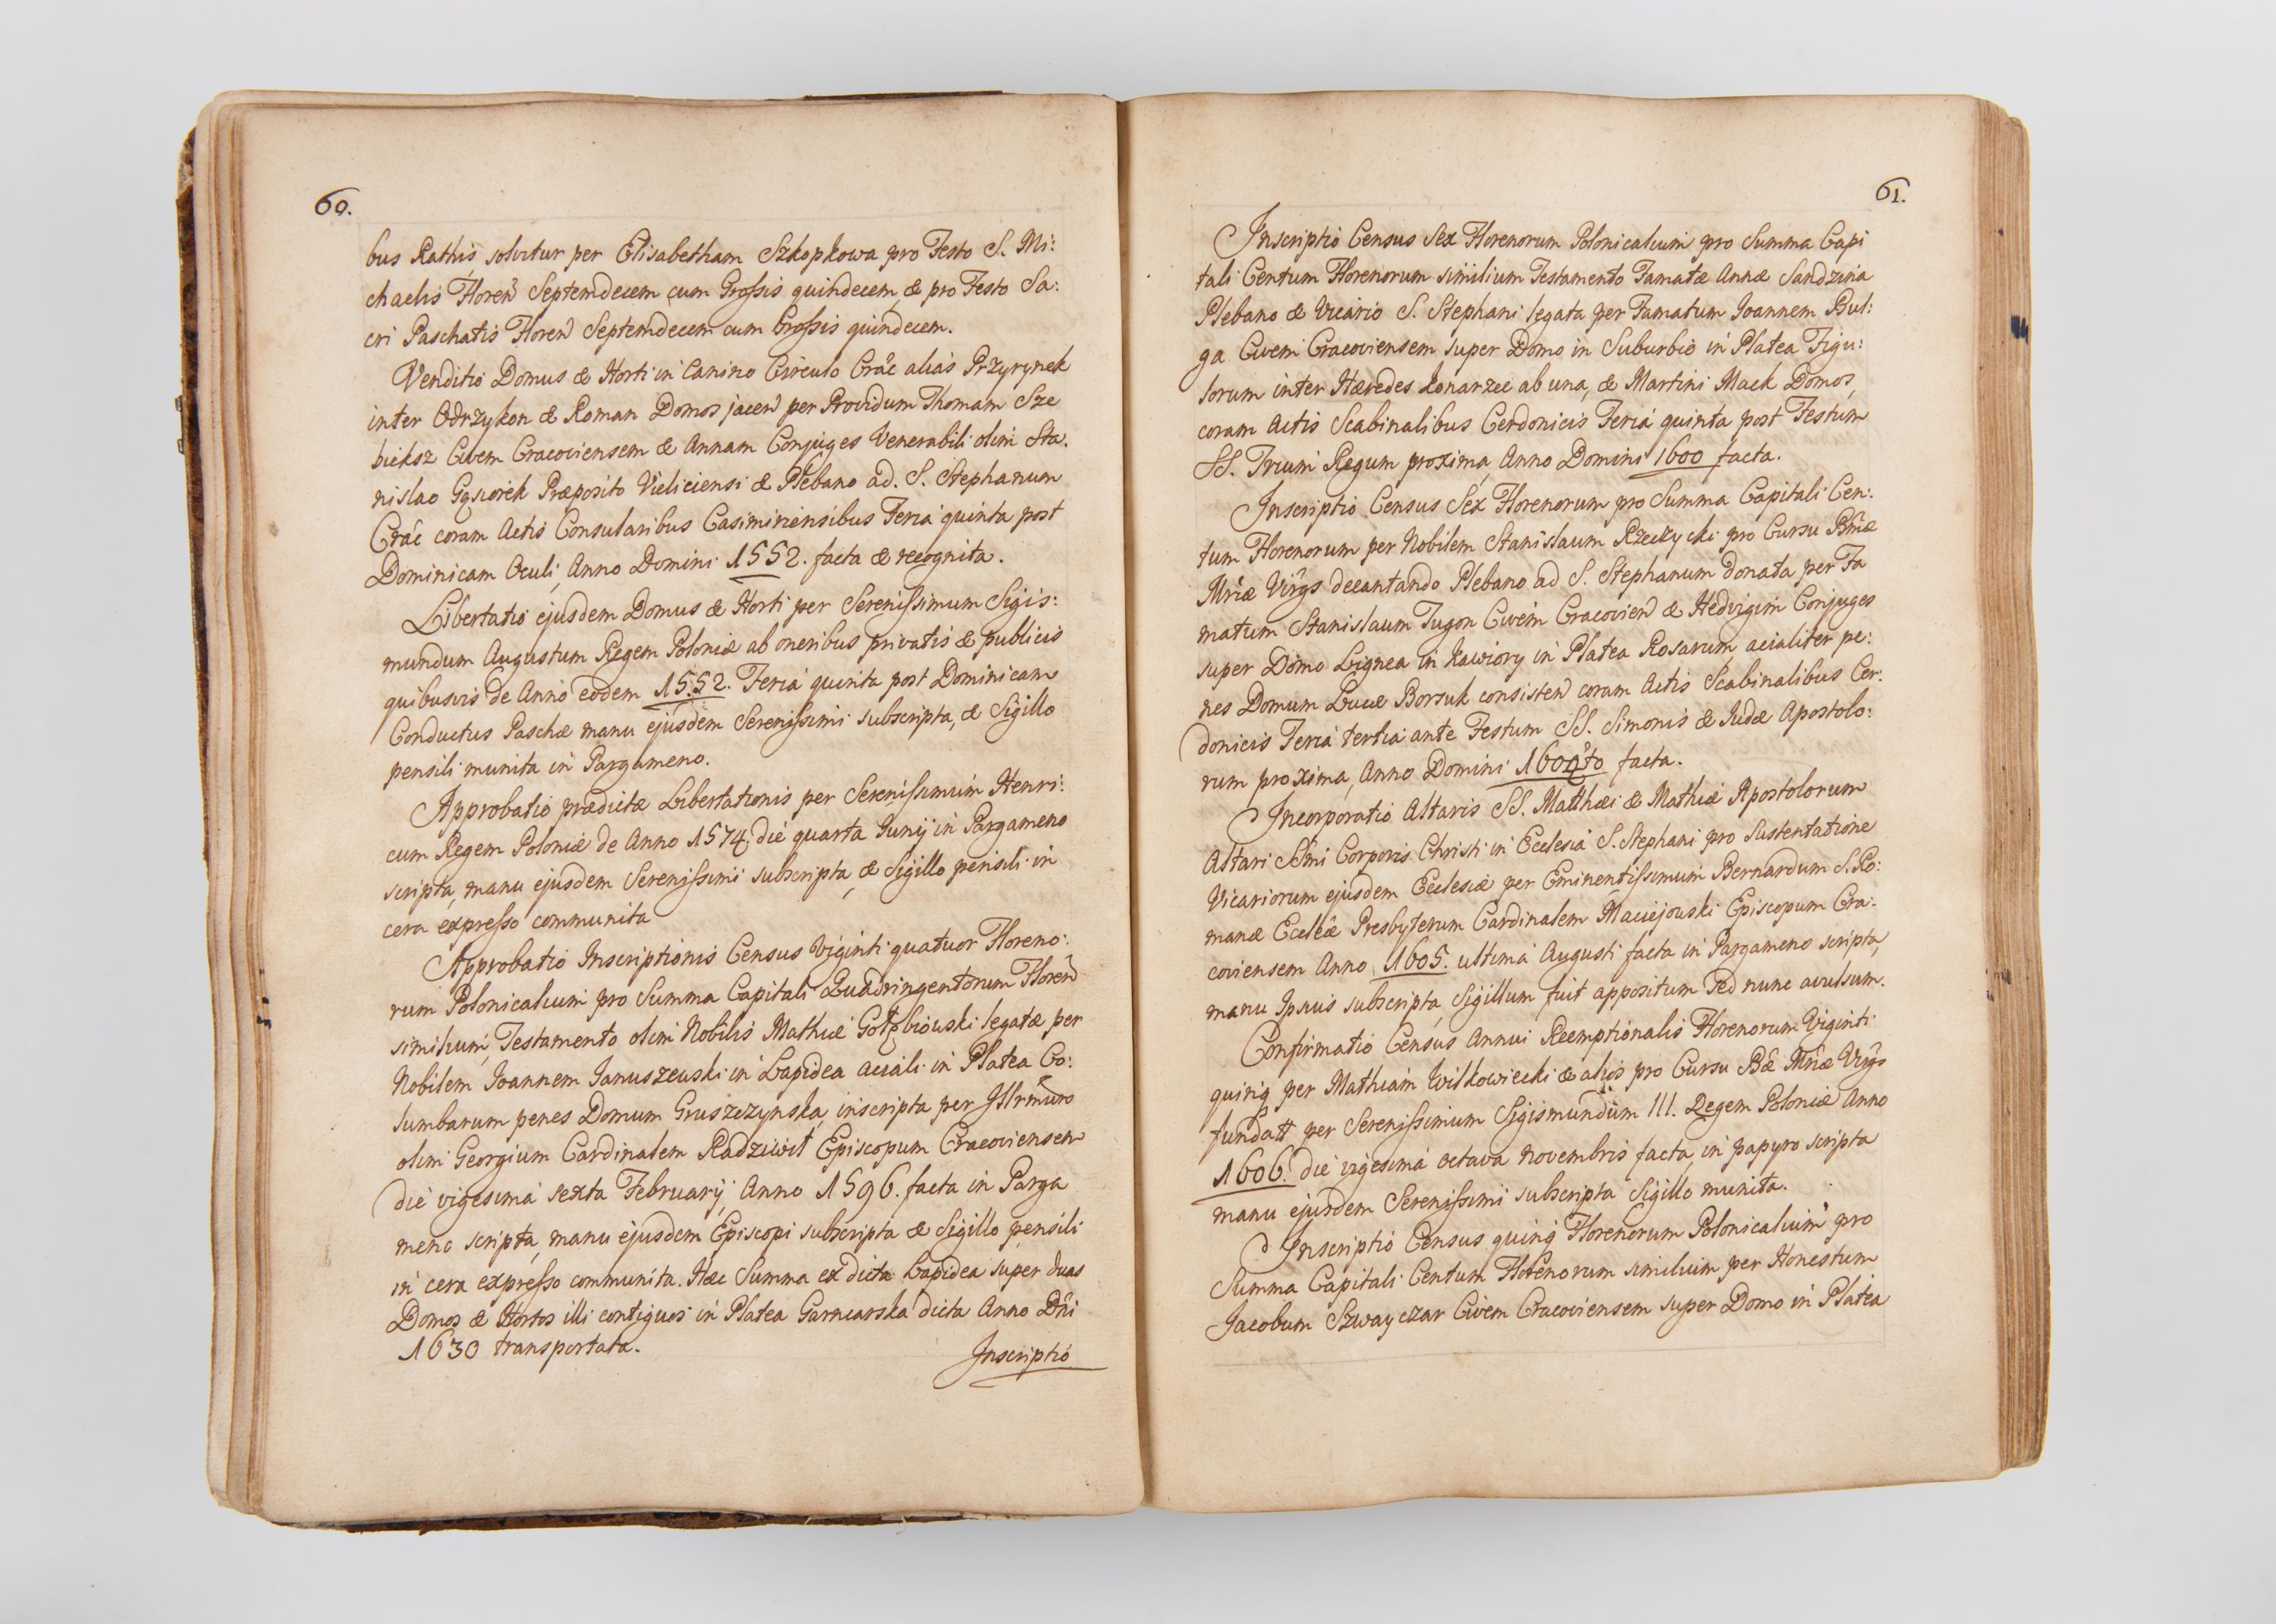 60.
bus Rathis solvitur per Elisabetham Szkopkowa pro Festo S. Mi:
chaelis Floreñ Septemdecem cum Grossis quindecem & pro Festo Sa:
cri Paschatis Floreñ Septemdecem cum Grossis quindecem.
Venditio Domus & Horti in Canino Circulo Crâc alias Przyrynek
inter Odrzykon & Roman Domos jaceñ per Providum Thomam Sze
bieksz Civem Cracoviensem & Annam Conjuges Venerabili olim Sta:
nislao Gąsiorek Præposito Vieliciensi & Plebano ad S. Stephanum
Crâc coram Actis Consularibus Casimiriensibus Feria quinta post
Dominicam Oculi, Anno Domini 1552. facta & recognita.
Libertatio ejusdem Domus & Horti per Serenissimum Sigis:
mundum Augustum Regem Poloniæ ab oneribus privatis & publicis
quibusvis de Anno eodem 1552. Feria quinta post Dominicam
Conductus Paschæ manu ejusdem Serenissimi subscripta, & Sigillo
pensili munita in Pargameno.
Approbatio prædictæ Libertationis per Serenissimum Henri:
cum Regem Poloniæ de Anno 1574. die quarta Junij in Pargameno
scripta, manu ejusdem Serenissimi subscripta, & Sigillo pensili in
cera expresso communita
Approbatio Inscriptionis Census Viginti quatuor Floreno:
rum Polonicalium pro Summa Capitali Quadringentorum Floreñ
similium, Testamento olim Nobilis Mathiæ Gołębiowski legatæ per
Nobilem Joannem Januszewski in Lapidea aciali in Platea Co:
lumbarum penes Domum Gruszczynska, inscripta per Jllrmum
olim Georgium Cardinalem Radziwił Episcopum Cracoviensem
die vigesima sexta Februarij Anno 1596. facta in Parga
meno scripta, manu ejusdem Episcopi subscripta & Sigillo pensili
in cera expresso communita. Hæc Summa ex dicta Lapidea super duas
Domos & Hortos illi contiguos in Platea Garncarska dicta Anno Dñi
1630 transportata.
Inscriptio
61.
Inscriptio Census Sex Florenorum Polonicalium pro Summa Capi
tali Centum Florenorum similium Testamento Famatæ Annæ Sandzina
Plebano & Vicario S. Stephani legata per Famatum Joannem Bul:
ga Civem Cracoviensem super Domo in Suburbio in Platea Figu:
lorum inter Hæredes Konarzec ab una, & Martini Maek Domos,
coram Actis Scabinalibus Cerdonicis Feria quinta post Festum
SS. Trium Regum proxima, Anno Domini 1600 facta.
Inscriptio Census Sex Florenorum pro Summa Capitali Cen:
tum Florenorum per Nobilem Stanislaum Rzeczycki pro Cursu Bmæ
Mriæ Virgs decantando Plebano ad S. Stephanum donata per Fa
matum Stanislaum Tugon Civem Cracovieñ & Hedvigim Conjuges
super Domo Lignea in Kawiory in Platea Rosarum acialiter pe:
nes Domum Lucæ Borsuk consisteñ coram Actis Scabinalibus Cer:
donicis Feria tertia ante Festum SS. Simonis & Judæ Apostolo:
rum proxima, Anno Domini facta.
Incorporatio Altaris SS. Matthæi & Mathiæ Apostolorum
Altari SSmi Corporis Christi in Ecclesia S. Stephani pro Sustentatione
Vicariorum ejusdem Ecclesiæ per Eminentissimum Bernardum S. Ro:
manæ Eccleæ Presbyterum Cardinalem Maciejowski Episcopum Cra:
coviensem Anno 1605. ultima Augusti facta in Pargameno scripta,
manu Ipsius subscripta, Sigillum fuit appositum sed nunc avulsum.
Confirmatio Census Annui Reemptionalis Florenorum Viginti
quinq per Mathiam Wilkowiecki & alios pro Cursu Bê Mriæ Virgs
fundatt per Serenissimum Sigismundum III. Regem Poloniæ Anno
1606. die vigesima octava Novembris facta, in papyro scripta
manu ejusdem Serenissimi subscripta Sigillo munita.
Inscriptio Census quinq Florenorum Polonicalium pro
Summa Capitali Centum Florenorum similium per Honestum
Jacobum Szwayczar Civem Cracoviensem super Domo in Platea